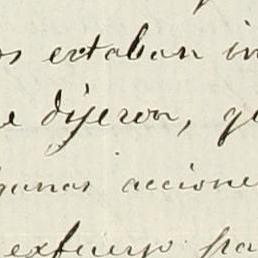 os estaban in
e dijeron, qu
gunas accione
esfuerzo pa